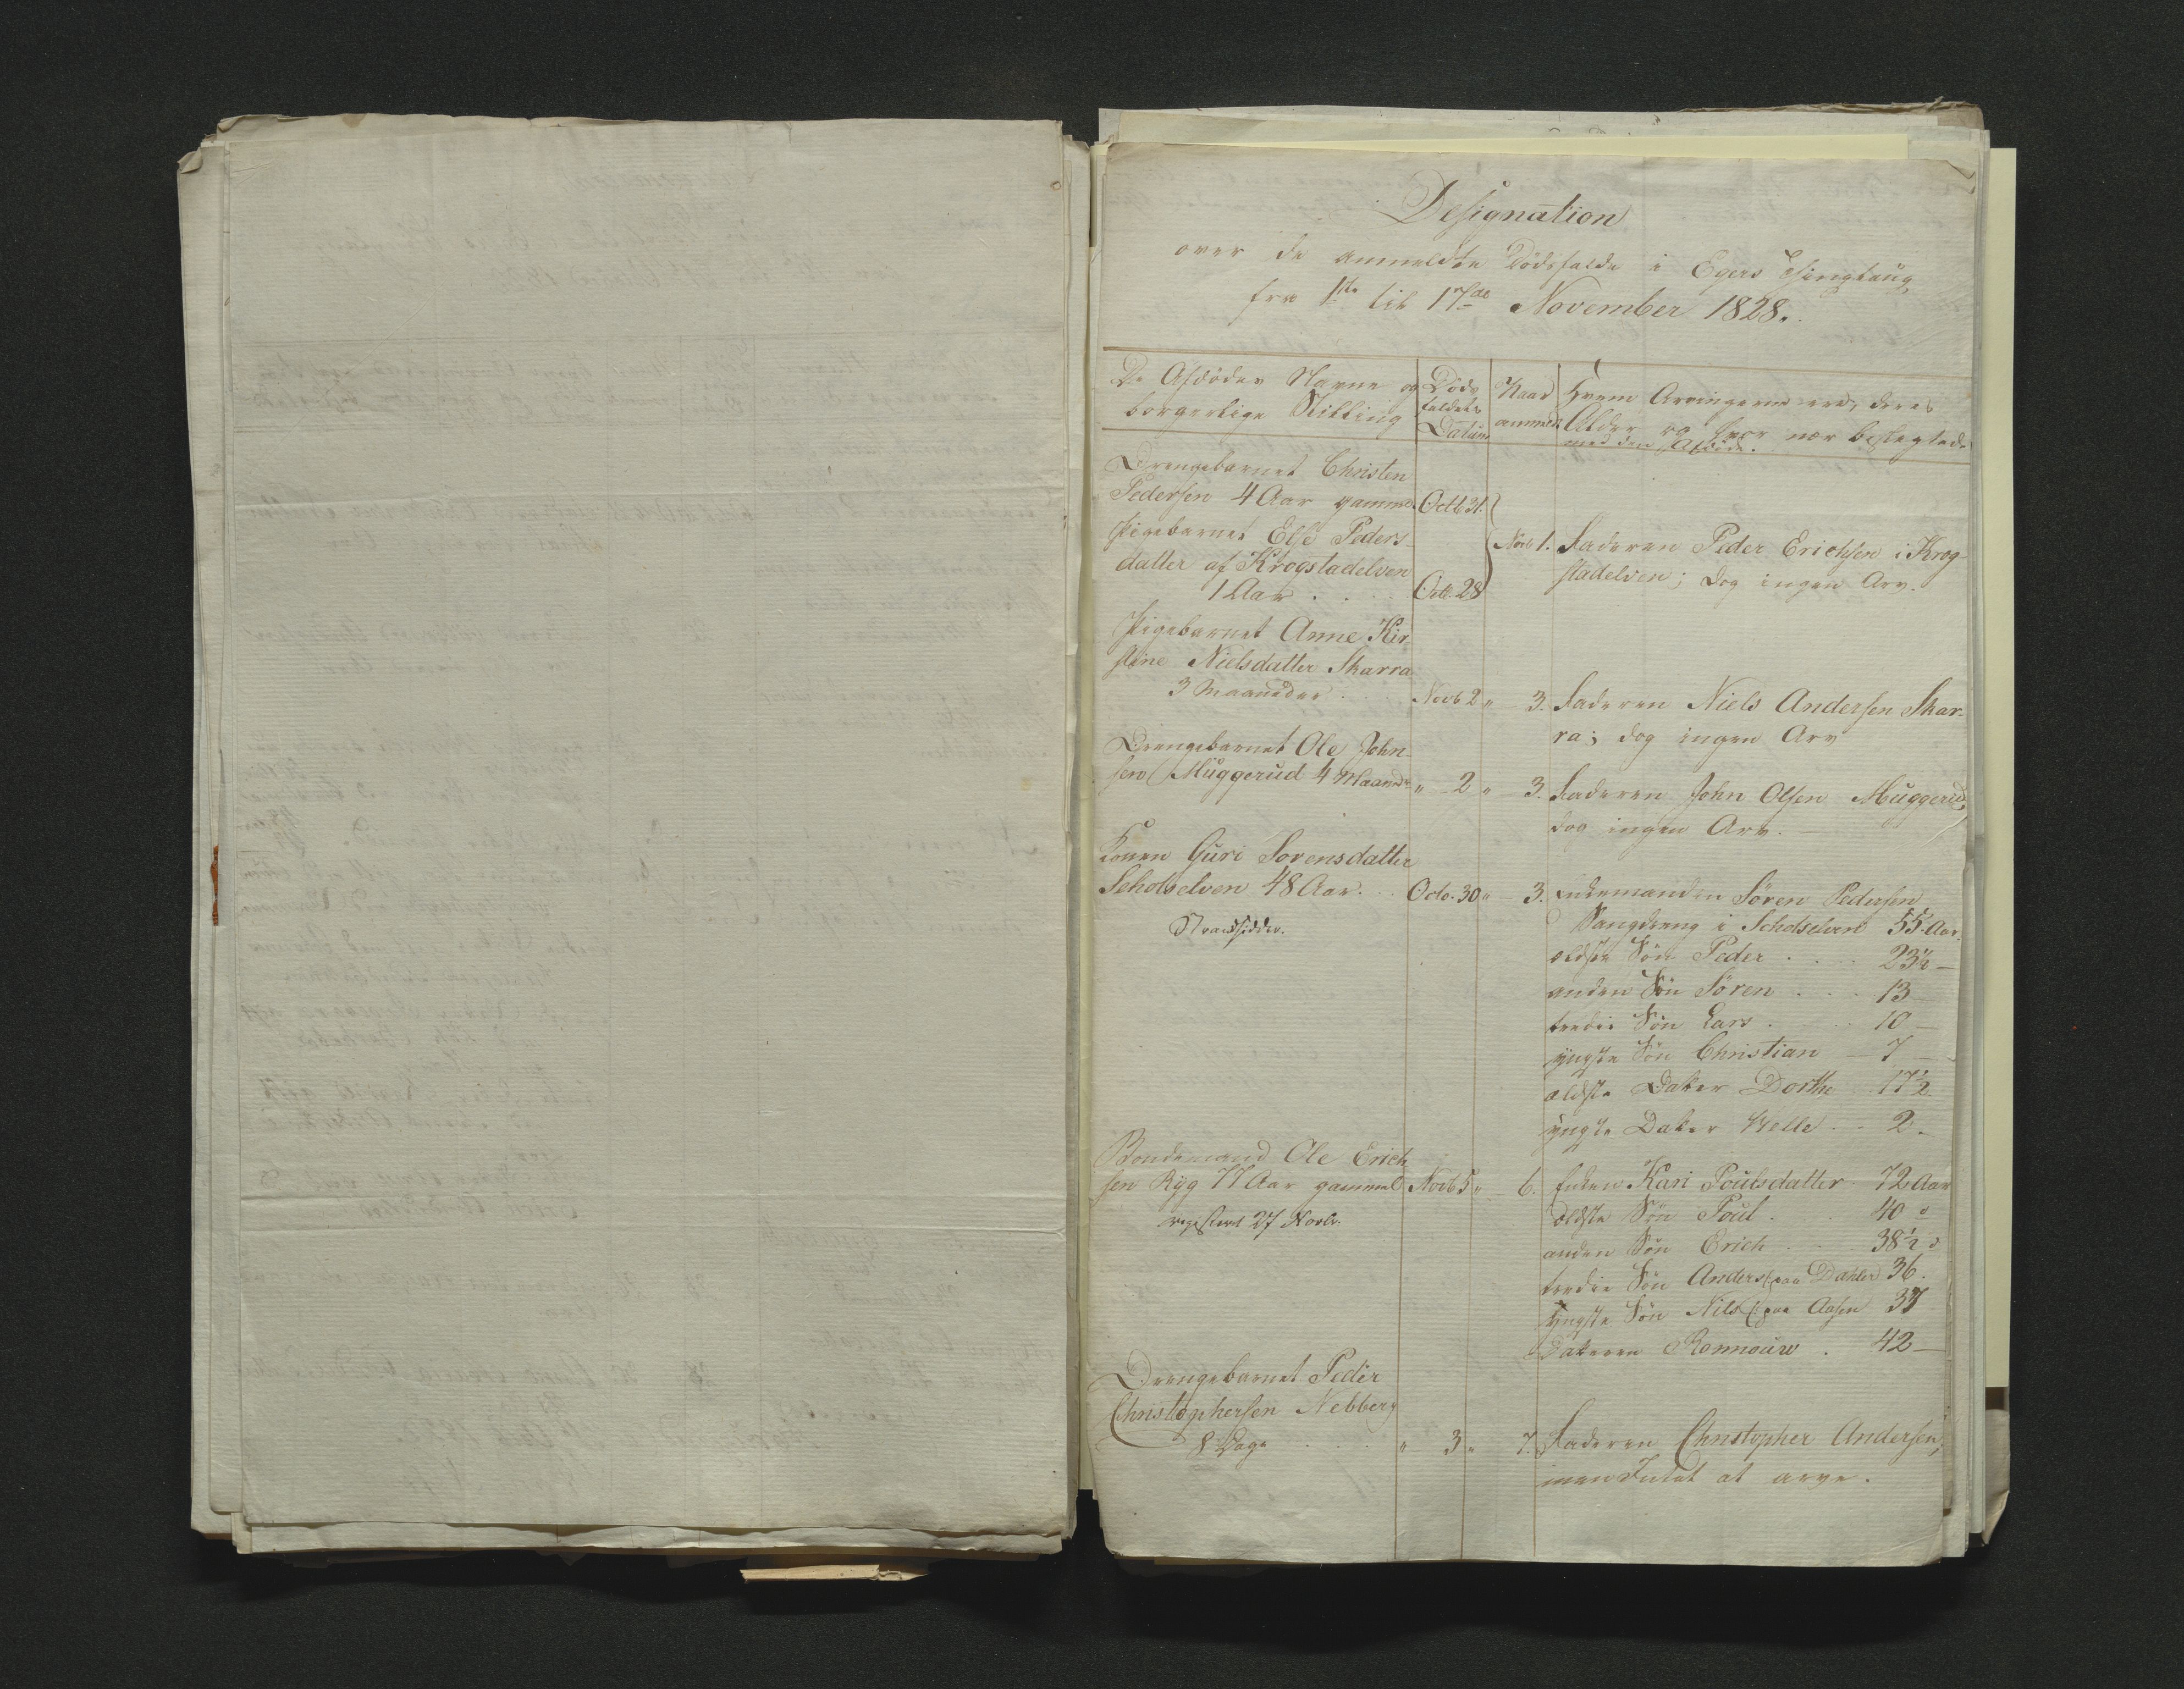 Designation
over de anmeldte Dödsfalde i Egers Thinglaug
fra 1ste til 17de November 1828.
De Afdödes Navne og borgerlige Stilling
Döds faldets Datum
Naar anmeldt
Hvem Arvingerne ere, deres Alder og hvor nær beslegtede med den Afdöde.
Drengebarnet Christen
Pedersen 4 Aar gammel Octb 31.
Pigebarnet Else Peders-
datter af Krogstadelven
1 Aar . . . Octb. 28
Novb 1. Faderen Peder Erichsen i Krog-
stadelven; dog ingen Arv.
Pigebarnet Anne Kir
stine Nielsdatter Skarra
3 Maaneder . . Novb 2 " 3. Faderen Niels Andersen Skar-
ra; dog ingen Arv
Drengebarnet Ole John-
sen Muggerud 4 Maaneder " 2 " 3. Faderen John Olsen Muggerud,
dog ingen Arv. —
Konen Guri Sorensdatter
Schotselven 48 Aar. . . Octo. 30 " 3. Enkemanden Sören Pedersen
Strandsidder.
Vangdreng i Schotselven 55 Aar.
ældste Sön Peder . . . 23½ —
anden Sön Sören . . . 13 —
tredie Sön Lars . . . 10 —
yngste Sön Christian — 7 —
ældste Datter Dorthe 17½
yngste Datter Helle . . 2 .
Bondemand Ole Erich
sen Ryg 77 Aar gammel Novb 5 " 6. Enken Kari Poulsdatter 72 Aar
registeret 27 Novbr.
ældste Sön Poul . . 40 "
anden Sön Erich . . 38½ "
tredie Sön Anders (: paa Dahler 36.
yngste Sön Nils (: paa Aasen 37
Datteren Ronnouw . 42 —
Drengebarnet Peder
Christophersen Nebberg
8 Dage . . . " 3 " 7. Faderen Christopher Andersen,
men Intet at arve.